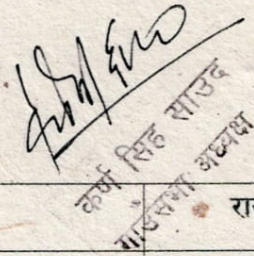 कर्ण सिंह साउद
गाउँसभा अध्यक्ष
रा